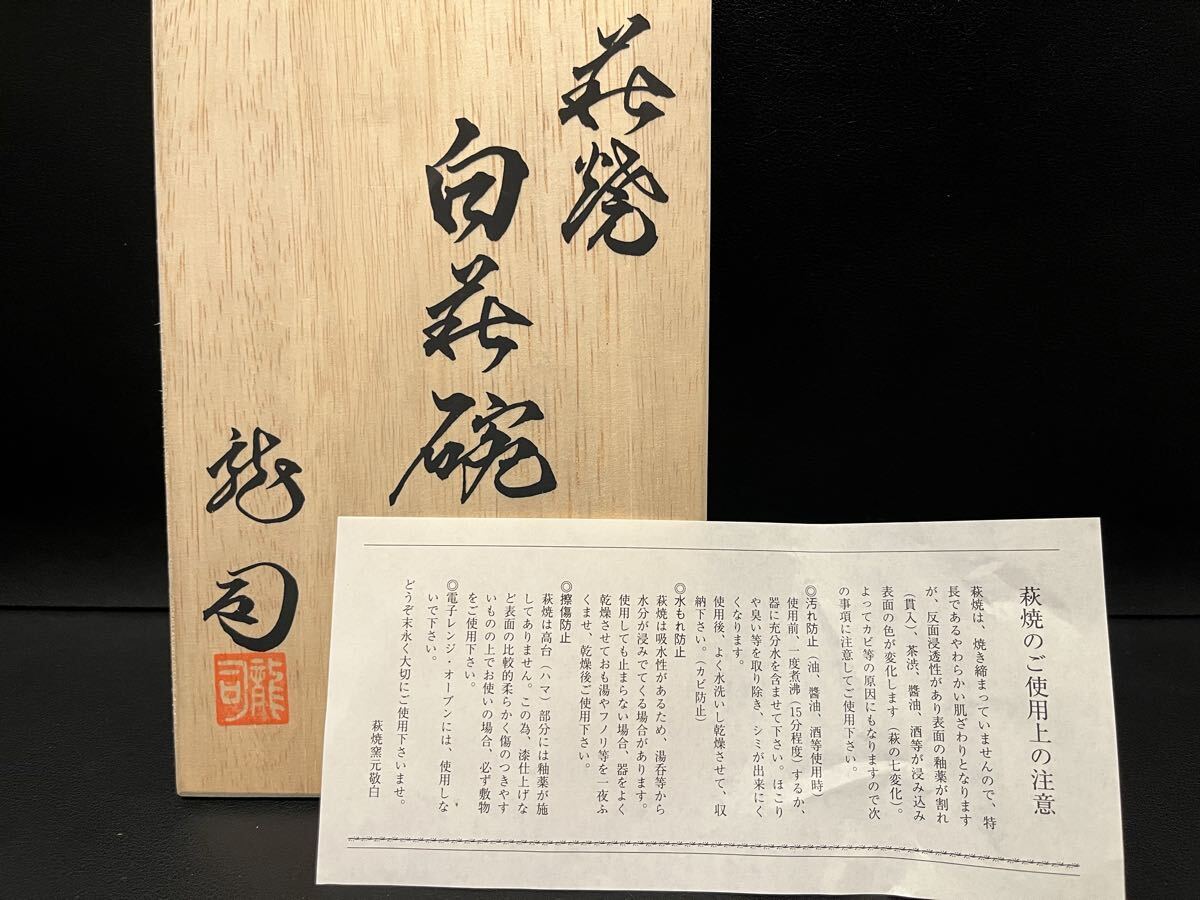 萩焼
白萩碗
龍司
龍司
萩焼のご使用上の注意
萩焼は、焼き締まっていませんので、特
長であるやわらかい肌ざわりとなります
が、反面浸透性があり表面の釉薬が割れ
(貫入)、茶渋、醬油、酒等が浸み込み
表面の色が変化します(萩の七変化)。
よってカビ等の原因にもなりますので次
の事項に注意してご使用下さい。
◎汚れ防止(油、醬油、酒等使用時)
使用前、一度煮沸(15分程度)するか、
器に充分水を含ませて下さい。ほこり
や臭い等を取り除き、シミが出来にく
くなります。
使用後、よく水洗いし乾燥させて、収
納下さい。(カビ防止)
◎水もれ防止
萩焼は吸水性があるため、湯呑等から
水分が浸みでてくる場合があります。
使用しても止まらない場合、器をよく
乾燥させておも湯やフノリ等を一夜ふ
くませ、乾燥後ご使用下さい。
◎擦傷防止
萩焼は高台(ハマ)部分には釉薬が施
してありません。この為、漆仕上げな
ど表面の比較的柔らかく傷のつきやす
いものの上でお使いの場合、必ず敷物
をご使用下さい。
◎電子レンジ・オーブンには、使用しな
いで下さい。
どうぞ末永く大切にご使用下さいませ。
萩焼窯元敬白